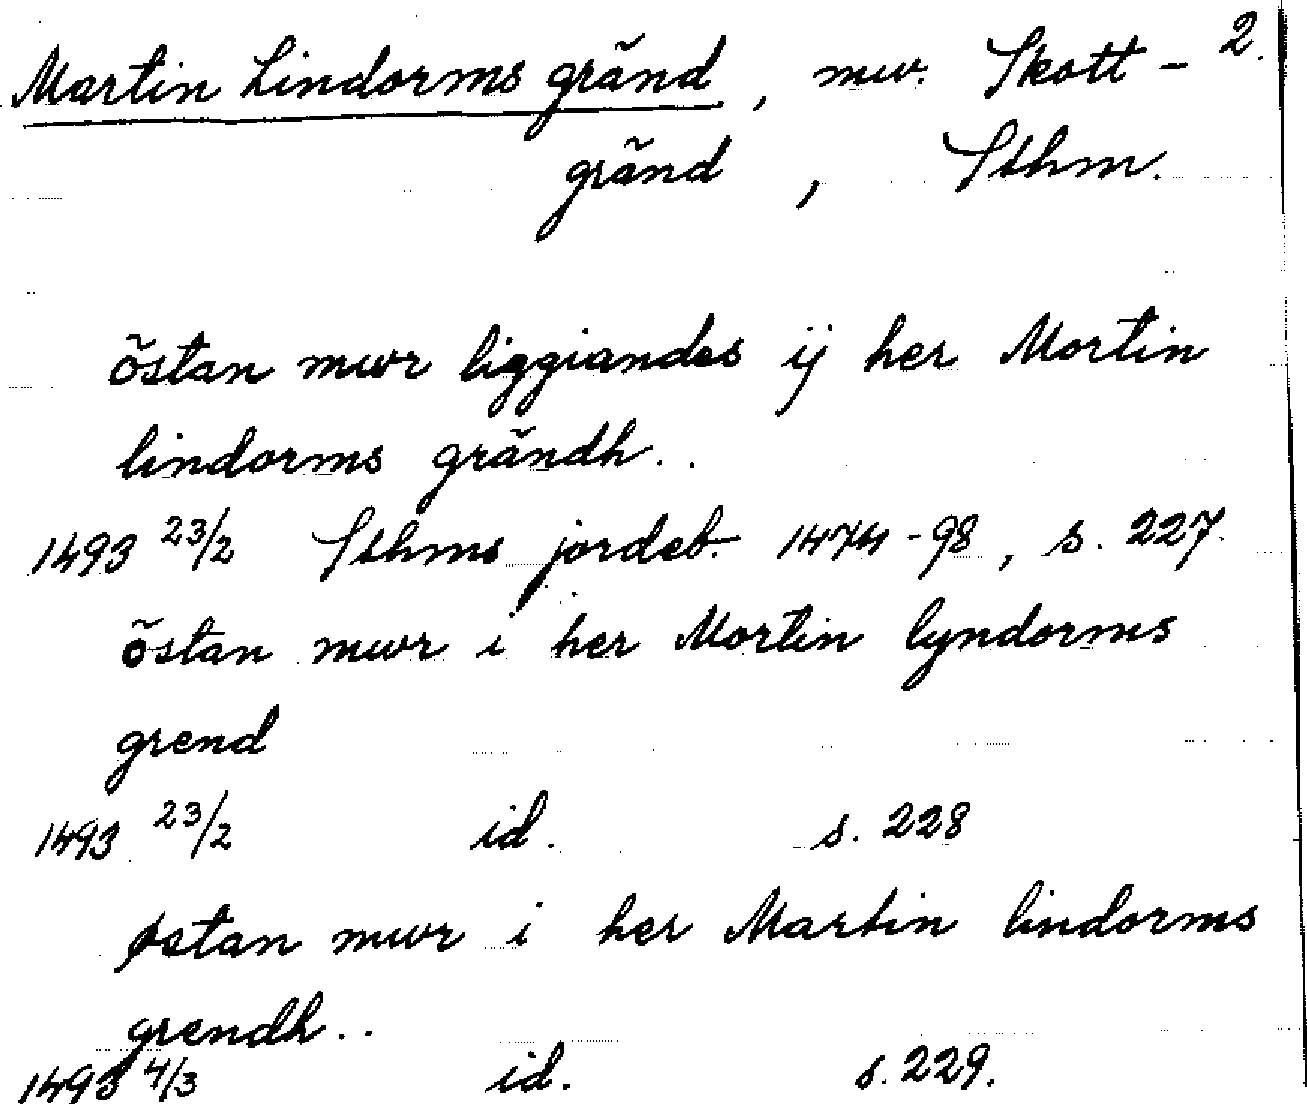 Martin Lindorms gränd, nuv. Skott- 2.
gränd, Sthm.
östan mwr liggiandes ij her Mortin
lindorms grändh..
1493 23/2 Sthms jordeb. 1474-98, s. 227.
östan mwr i her Mortin lyndorms
grend
1493 23/2 id. s. 228
østan mwr i her Martin lindorms
grendh..
1493 4/3 id. s. 229.